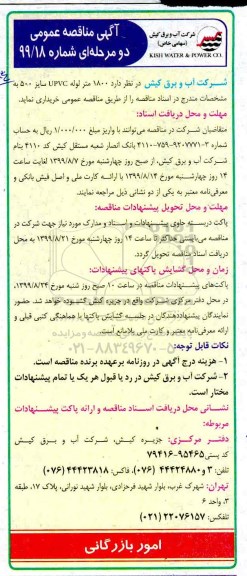 آگهی مناقصه عمومی
دو مرحله‌ای شماره ۹۹/۱۸
شرکت آب و برق کیش
(سهامی خاص)
KISH WATER & POWER CO.
شرکت آب و برق کیش در نظر دارد ۱۸۰۰ متر لوله UPVC سایز ۵۰۰ به
مشخصات مندرج در اسناد مناقصه را از طریق مناقصه عمومی خریداری نماید.
مهلت و محل دریافت اسناد:
متقاضیان شرکت در مناقصه می‌توانند با واریز مبلغ ۱/۰۰۰/۰۰۰ ریال به حساب
شرکت آب و برق کیش، از صبح روز چهارشنبه مورخ ۱۳۹۹/۸/۷ لغایت ساعت
۱۴ روز چهارشنبه مورخ ۱۳۹۹/۸/۱۴ با ارائه کارت ملی و اصل فیش بانکی و
معرفی‌نامه معتبر به یکی از دو نشانی ذیل مراجعه نمایند.
مهلت و محل تحویل پیشنهادات مناقصه:
پاکت دربسته حاوی پیشنهادات و اسناد و مدارک مورد نیاز جهت شرکت در
مناقصه می‌بایستی حداکثر تا ساعت ۱۴ روز چهارشنبه مورخ ۱۳۹۹/۸/۲۱ به محل
دریافت اسناد مناقصه تحویل گردد.
زمان و محل گشایش پاکتهای پیشنهادات:
پاکت‌های پیشنهادات مناقصه در ساعت ۱۰ صبح روز شنبه مورخ ۱۳۹۹/۸/۲۴
در محل دفتر مرکزی شرکت واقع در جزیره کیش گشوده خواهد شد. حضور
نمایندگان پیشنهاددهندگان در جلسه گشایش پاکتها با هماهنگی کتبی قبلی و
ارائه معرفی‌نامه معتبر و کارت ملی بلامانع است.
نکات قابل توجه:
۱- هزینه درج آگهی در روزنامه برعهده برنده مناقصه است.
۲- شرکت آب و برق کیش در رد یا قبول هر یک یا تمام پیشنهادات
مختار است.
نشانی محل دریافت اسناد مناقصه و ارائه پاکت پیشنهادات
مربوطه:
دفتر مرکزی: جزیره کیش، شرکت آب و برق کیش
کد پستی ۹۵۴۶۵-۷۹۴۱۶
تلفن: ۳ و ۴۴۴۲۴۸۸۰ (۰۷۶)، فاکس: ۴۴۴۲۳۸۱۸ (۰۷۶)
تهران: شهرک غرب، بلوار شهید فرحزادی، بلوار شهید نورانی، پلاک ۱۷، طبقه
۳، واحد ۶
تلفکس: ۲۲۰۷۶۱۵۷ (۰۲۱)
امور بازرگانی